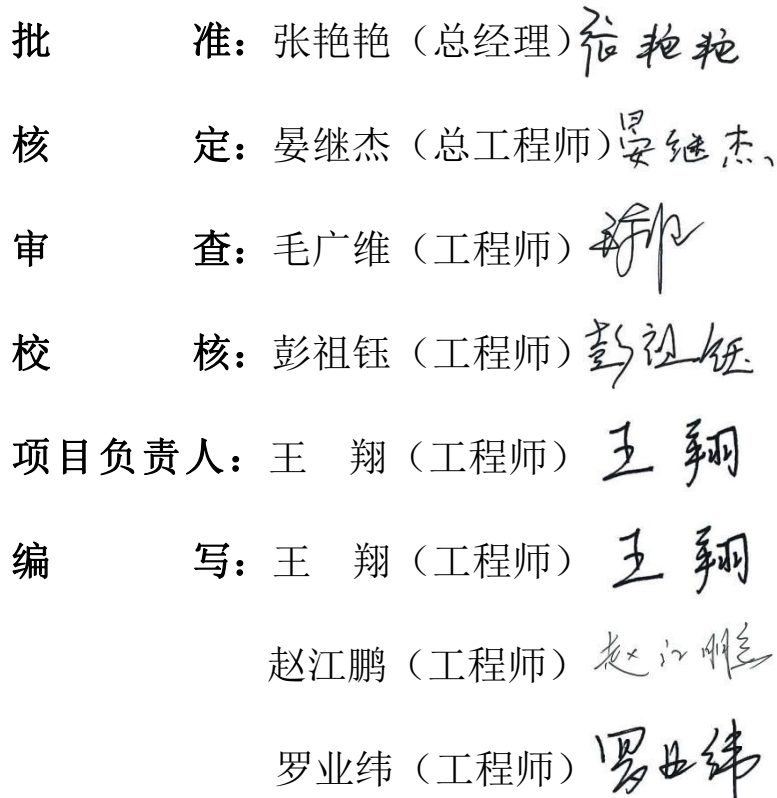 批准：张艳艳（总经理）张艳艳
核定：晏继杰（总工程师）晏继杰
审查：毛广维（工程师）
校核：彭祖钰（工程师）彭祖钰
项目负责人：王 翔（工程师）王翔
编写：王 翔（工程师）王翔
赵江鹏（工程师）赵江鹏
罗业纬（工程师）罗业纬